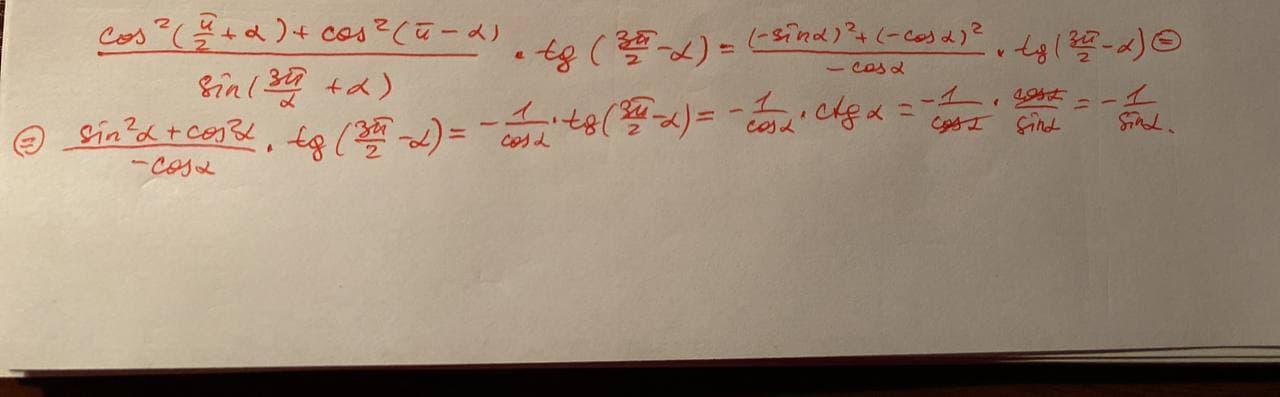 (cos²(π/2 + α) + cos²(π - α)) / sin(3π/α + α) · tg(3π/2 - α) = ((-sinα)² + (-cosα)²) / -cosα · tg(3π/2 - α) ⊜
⊜ (sin²α + cos²α) / -cosα · tg(3π/2 - α) = -1/cosα · tg(3π/2 - α) = -1/cosα · ctgα = -1/cosα · cosα/sinα = -1/sinα.